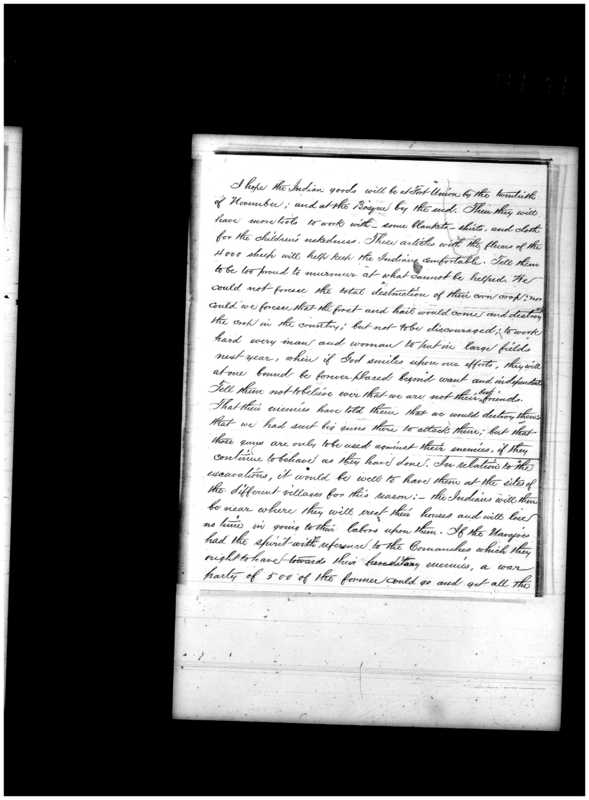 I hope the Indian goods will be at Fort Union by the twentieth
of November; and at the Bosque by the end. Then they will
have more tools to work with - some blankets - shirts, and cloth
for the children's nakedness. These articles with the fleeces of the
4000 sheep will help keep the Indians comfortable. Tell them
to be too proud to murmur at what cannot be helped. We
could not foresee the total destruction of their corn crop; nor
could we foresee that the frost and hail would come and destroy
the crop in the country; but not to be discouraged; to work
hard every man and woman to put in large fields
next year, when if God smiles upon our efforts, they will
at one bound be forever placed beyond want and independent.
Tell them not to believe ever that we are not their best friends.
That their enemies have told them that we would destroy them;
that we had sent big guns there to attack them; but that
those guns are only to be used against their enemies, if they
continue to behave as they have done. In relation to the
excavations, it would be well to have them at the sites of
the different villages for this reason: - the Indians will then
be near where they will erect their houses and will lose
no time in going to their labors upon them. If the Navajoes
had the spirit with reference to the Comanches which they
ought to have towards their hereditary enemies, a war
party of 500 of the former could go and get all the